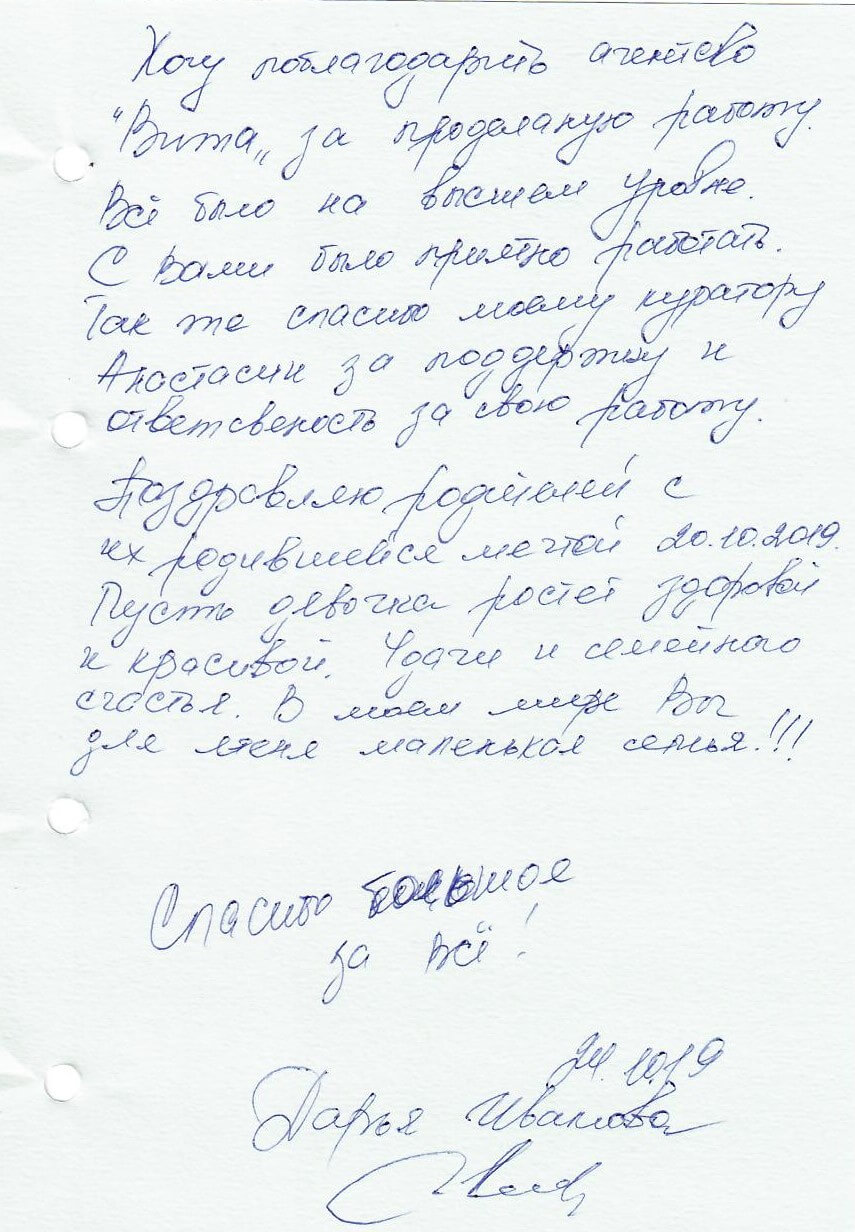 Хочу поблагодарить агентсво
"Вита„ за проделаную работу.
Всё было на высшем уровне.
С Вами было приятно работать.
Так же спасибо моему куратору
Анастасии за поддержку и
ответсвеность за свою работу.
Поздравляю родителей с
их родившейся мечтой 20.10.2019.
Пусть девочка ростет здоровой
и красивой. Удачи и семейного
счастья. В моем мире Вы
для меня маленькая семья!!!
Спасибо большое
за всё!
24.10.19
Дарья Иванова